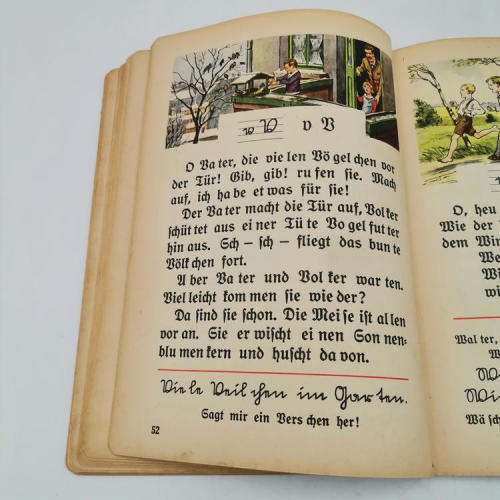 v V v V
O Va ter, die vie len Vö gel chen vor
der Tür! Gib, gib! ru fen sie. Mach
auf, ich ha be et was für sie!
Der Va ter macht die Tür auf, Vol ker
schüt tet aus ei ner Tü te Vo gel fut ter
hin aus. Sch – sch – fliegt das bun te
Völk chen fort.
A ber Va ter und Vol ker war ten.
Viel leicht kom men sie wie der?
Da sind sie schon. Die Mei se ist al len
vor an. Sie er wischt ei nen Son nen-
blu men kern und huscht da von.
Vie le Veil chen im Gar ten.
Sagt mir ein Vers chen her!
52
O, heu
Wie der
dem Win
We
We
wi
Wal ter,
W
Wi
Wi
Wä sch